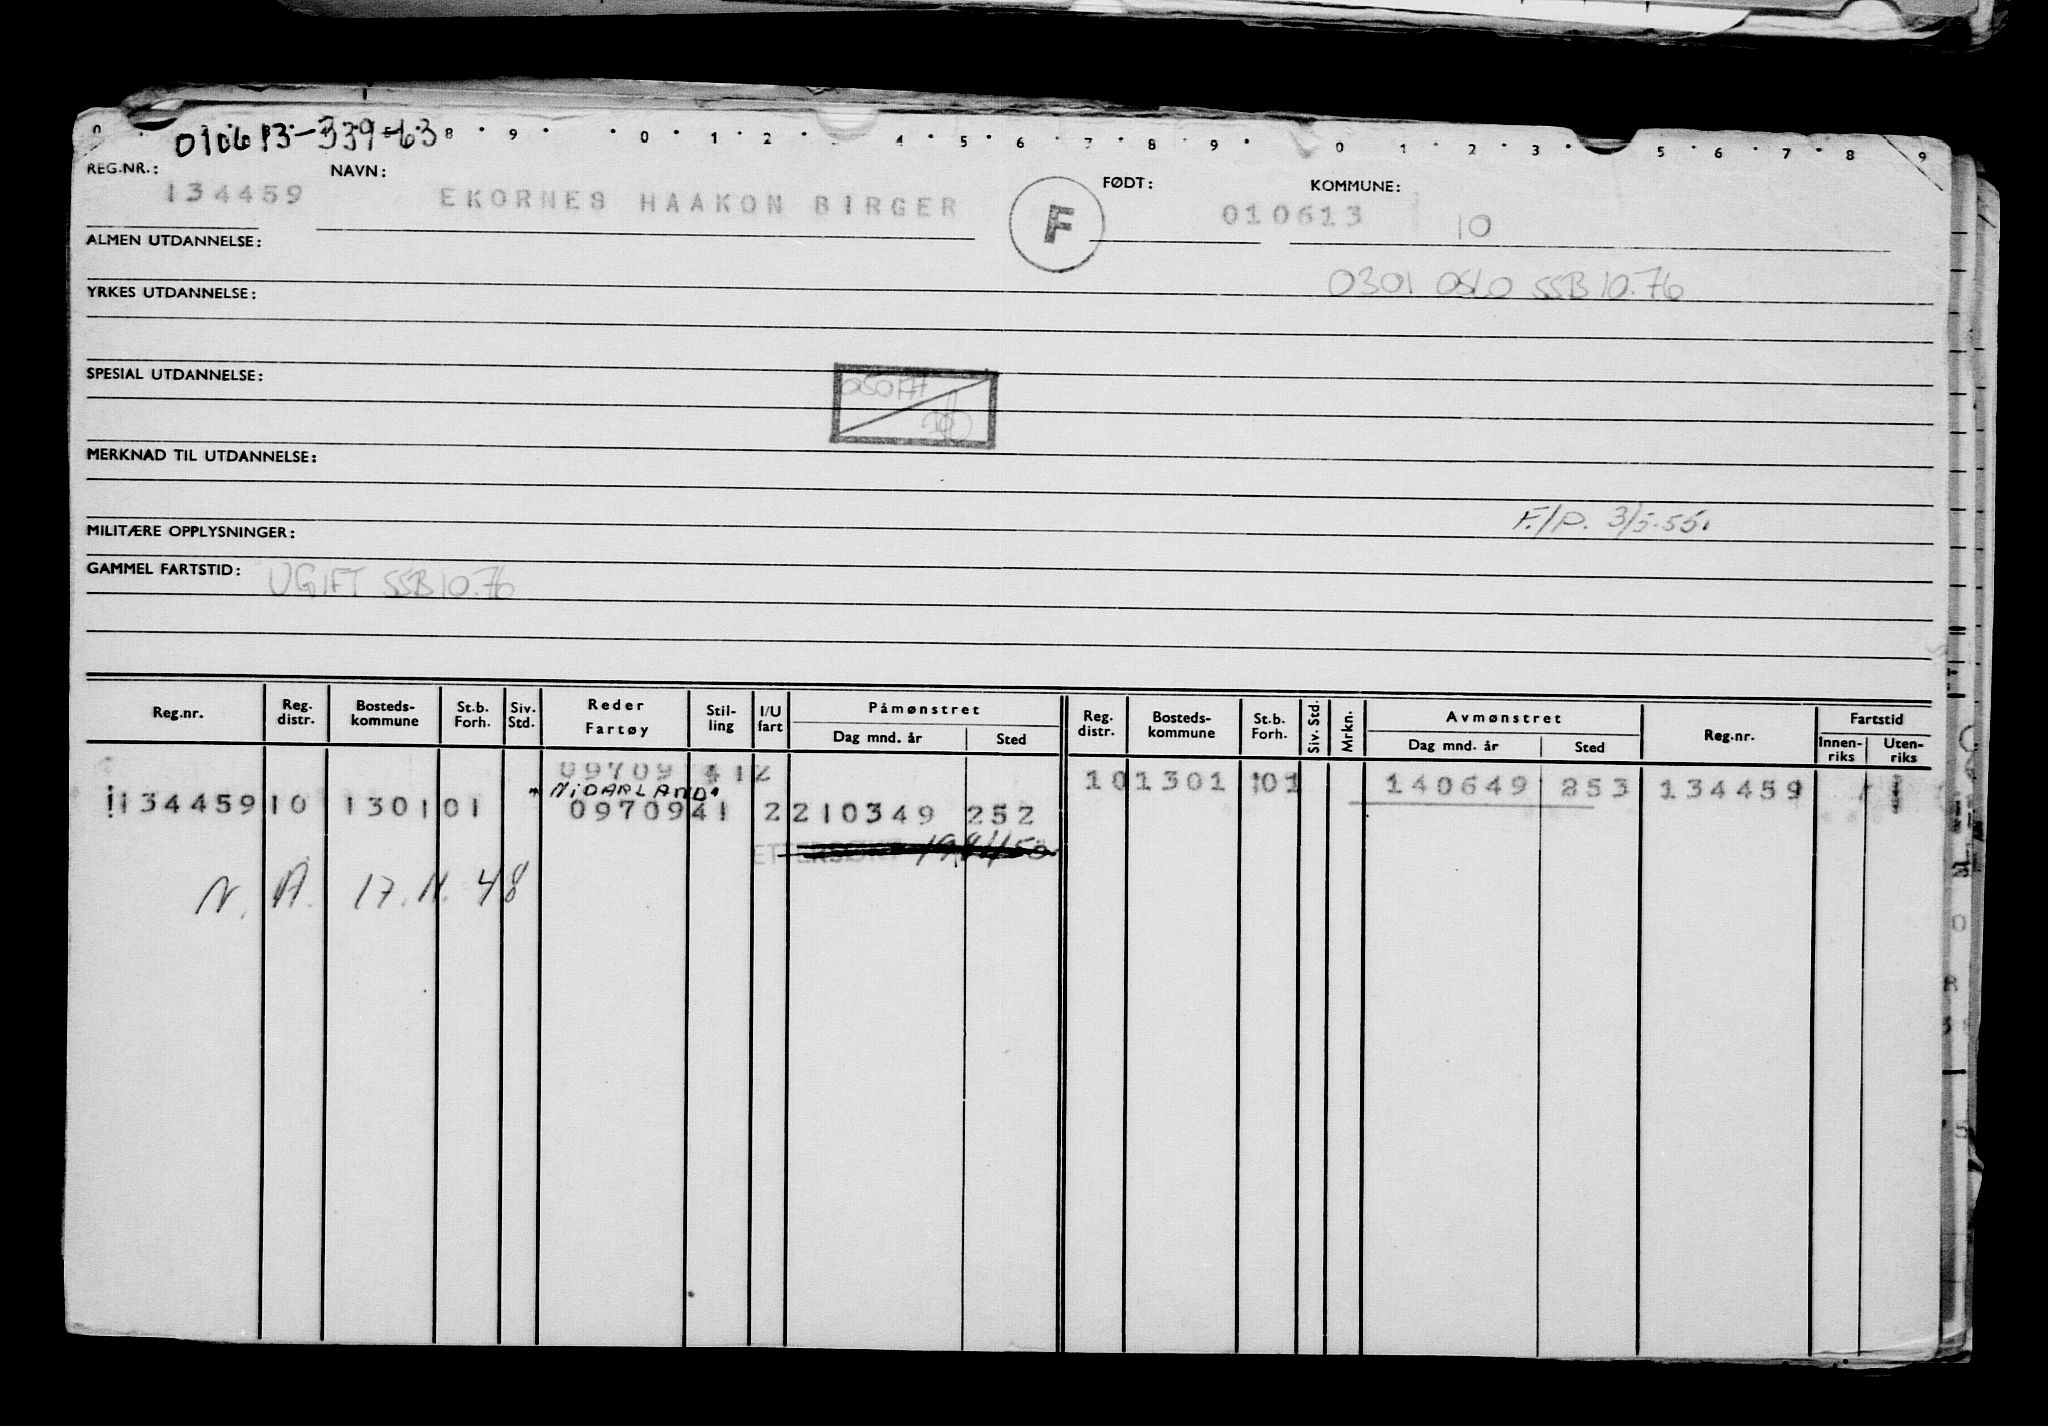 010613-339-63
0 8 9 0 1 2 3 4 5 6 7 8 9 0 1 2 3 5 6 7 8 9
REG.NR.: NAVN: FØDT: KOMMUNE:
134459 EKORNES HAAKON BIRGER F 010613 10
ALMEN UTDANNELSE:
0301 OSLO SSB 10.76
YRKES UTDANNELSE:
SPESIAL UTDANNELSE:
MERKNAD TIL UTDANNELSE:
F./P. 3/5.55.
MILITÆRE OPPLYSNINGER:
GAMMEL FARTSTID: UGIFT SSB 10.76
Reg.nr. Reg. distr. Bosteds- kommune St.b. Forh. Siv. Std. Reder Fartøy Stil- ling I/U fart Påmønstret Dag mnd. år Sted Reg. distr. Bosteds- kommune St.b. Forh. Siv. Std. Mrkn. Avmønstret Dag mnd. år Sted Reg.nr. Fartstid Innen- riks Uten- riks
09709 412 10 1301 01 140649 253 134459
"NIDARLAND"
134459 10 1301 01 09709 41 2 210349 252
N. A. 17.11.48